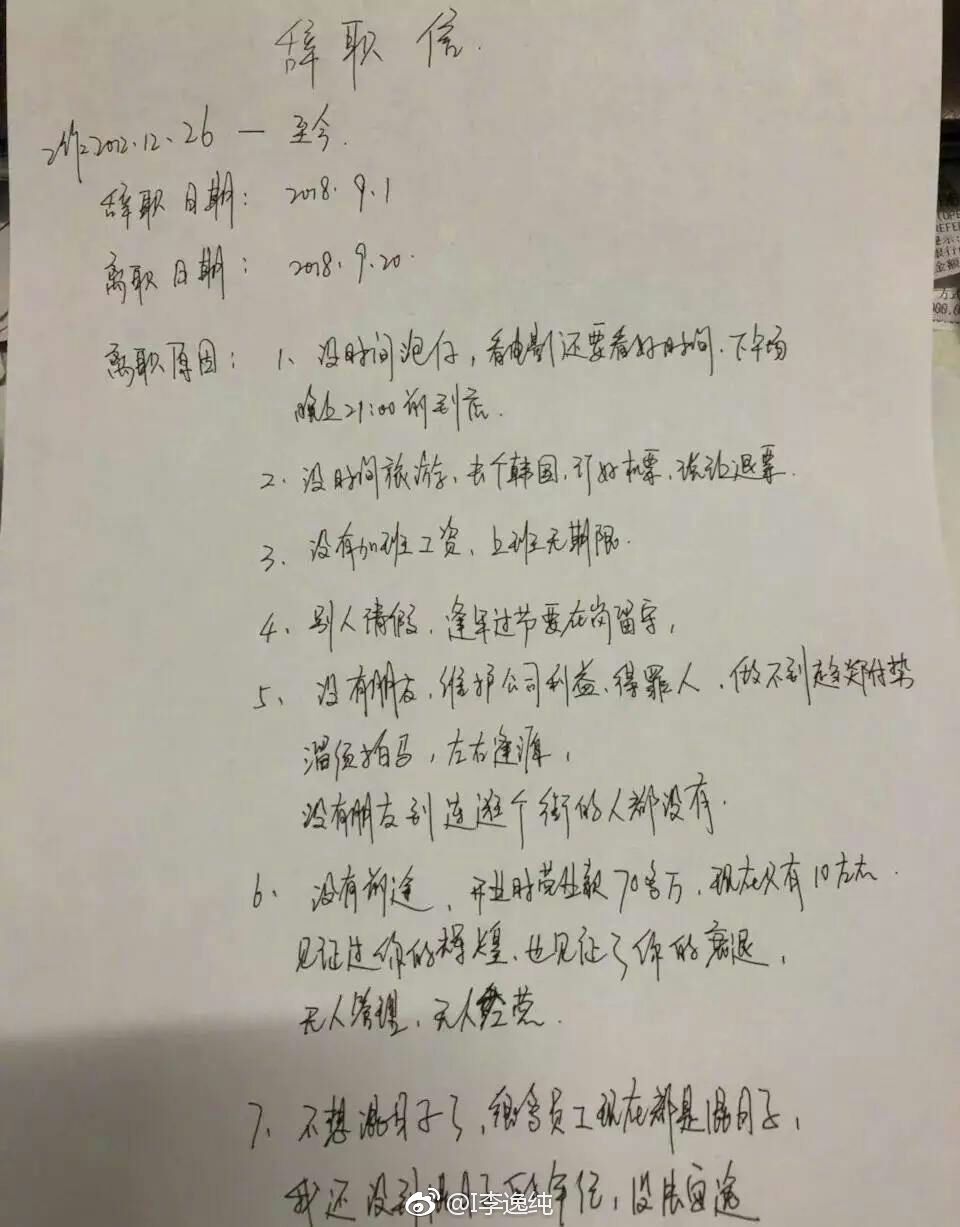 辞职信.
工作2012.12.26 — 至今.
辞职日期: 2018.9.1
离职日期: 2018.9.20.
离职原因: 1、没时间泡仔, 看电影还要看好时间. 下午场
晚上21:00前到店.
2、没时间旅游、去个韩国, 订好机票, 说让退票.
3、没有加班工资、上班无期限.
4、别人请假、逢年过节要在岗留守,
5、没有朋友, 维护公司利益、得罪人, 做不到趋炎附势
溜须拍马, 左右逢源,
没有朋友到连逛个街的人都没有.
6、没有前途、开业时营业额70多万, 现在只有10左右.
见证过你的辉煌、也见证了你的衰退,
无人管理、无人经营.
7、不想混日子了, 很多员工现在都是混日子,
我还没到混日子的年纪, 没法
@I李逸纯
(OPE
REFER
提示:
银行
金额
方式
000.0